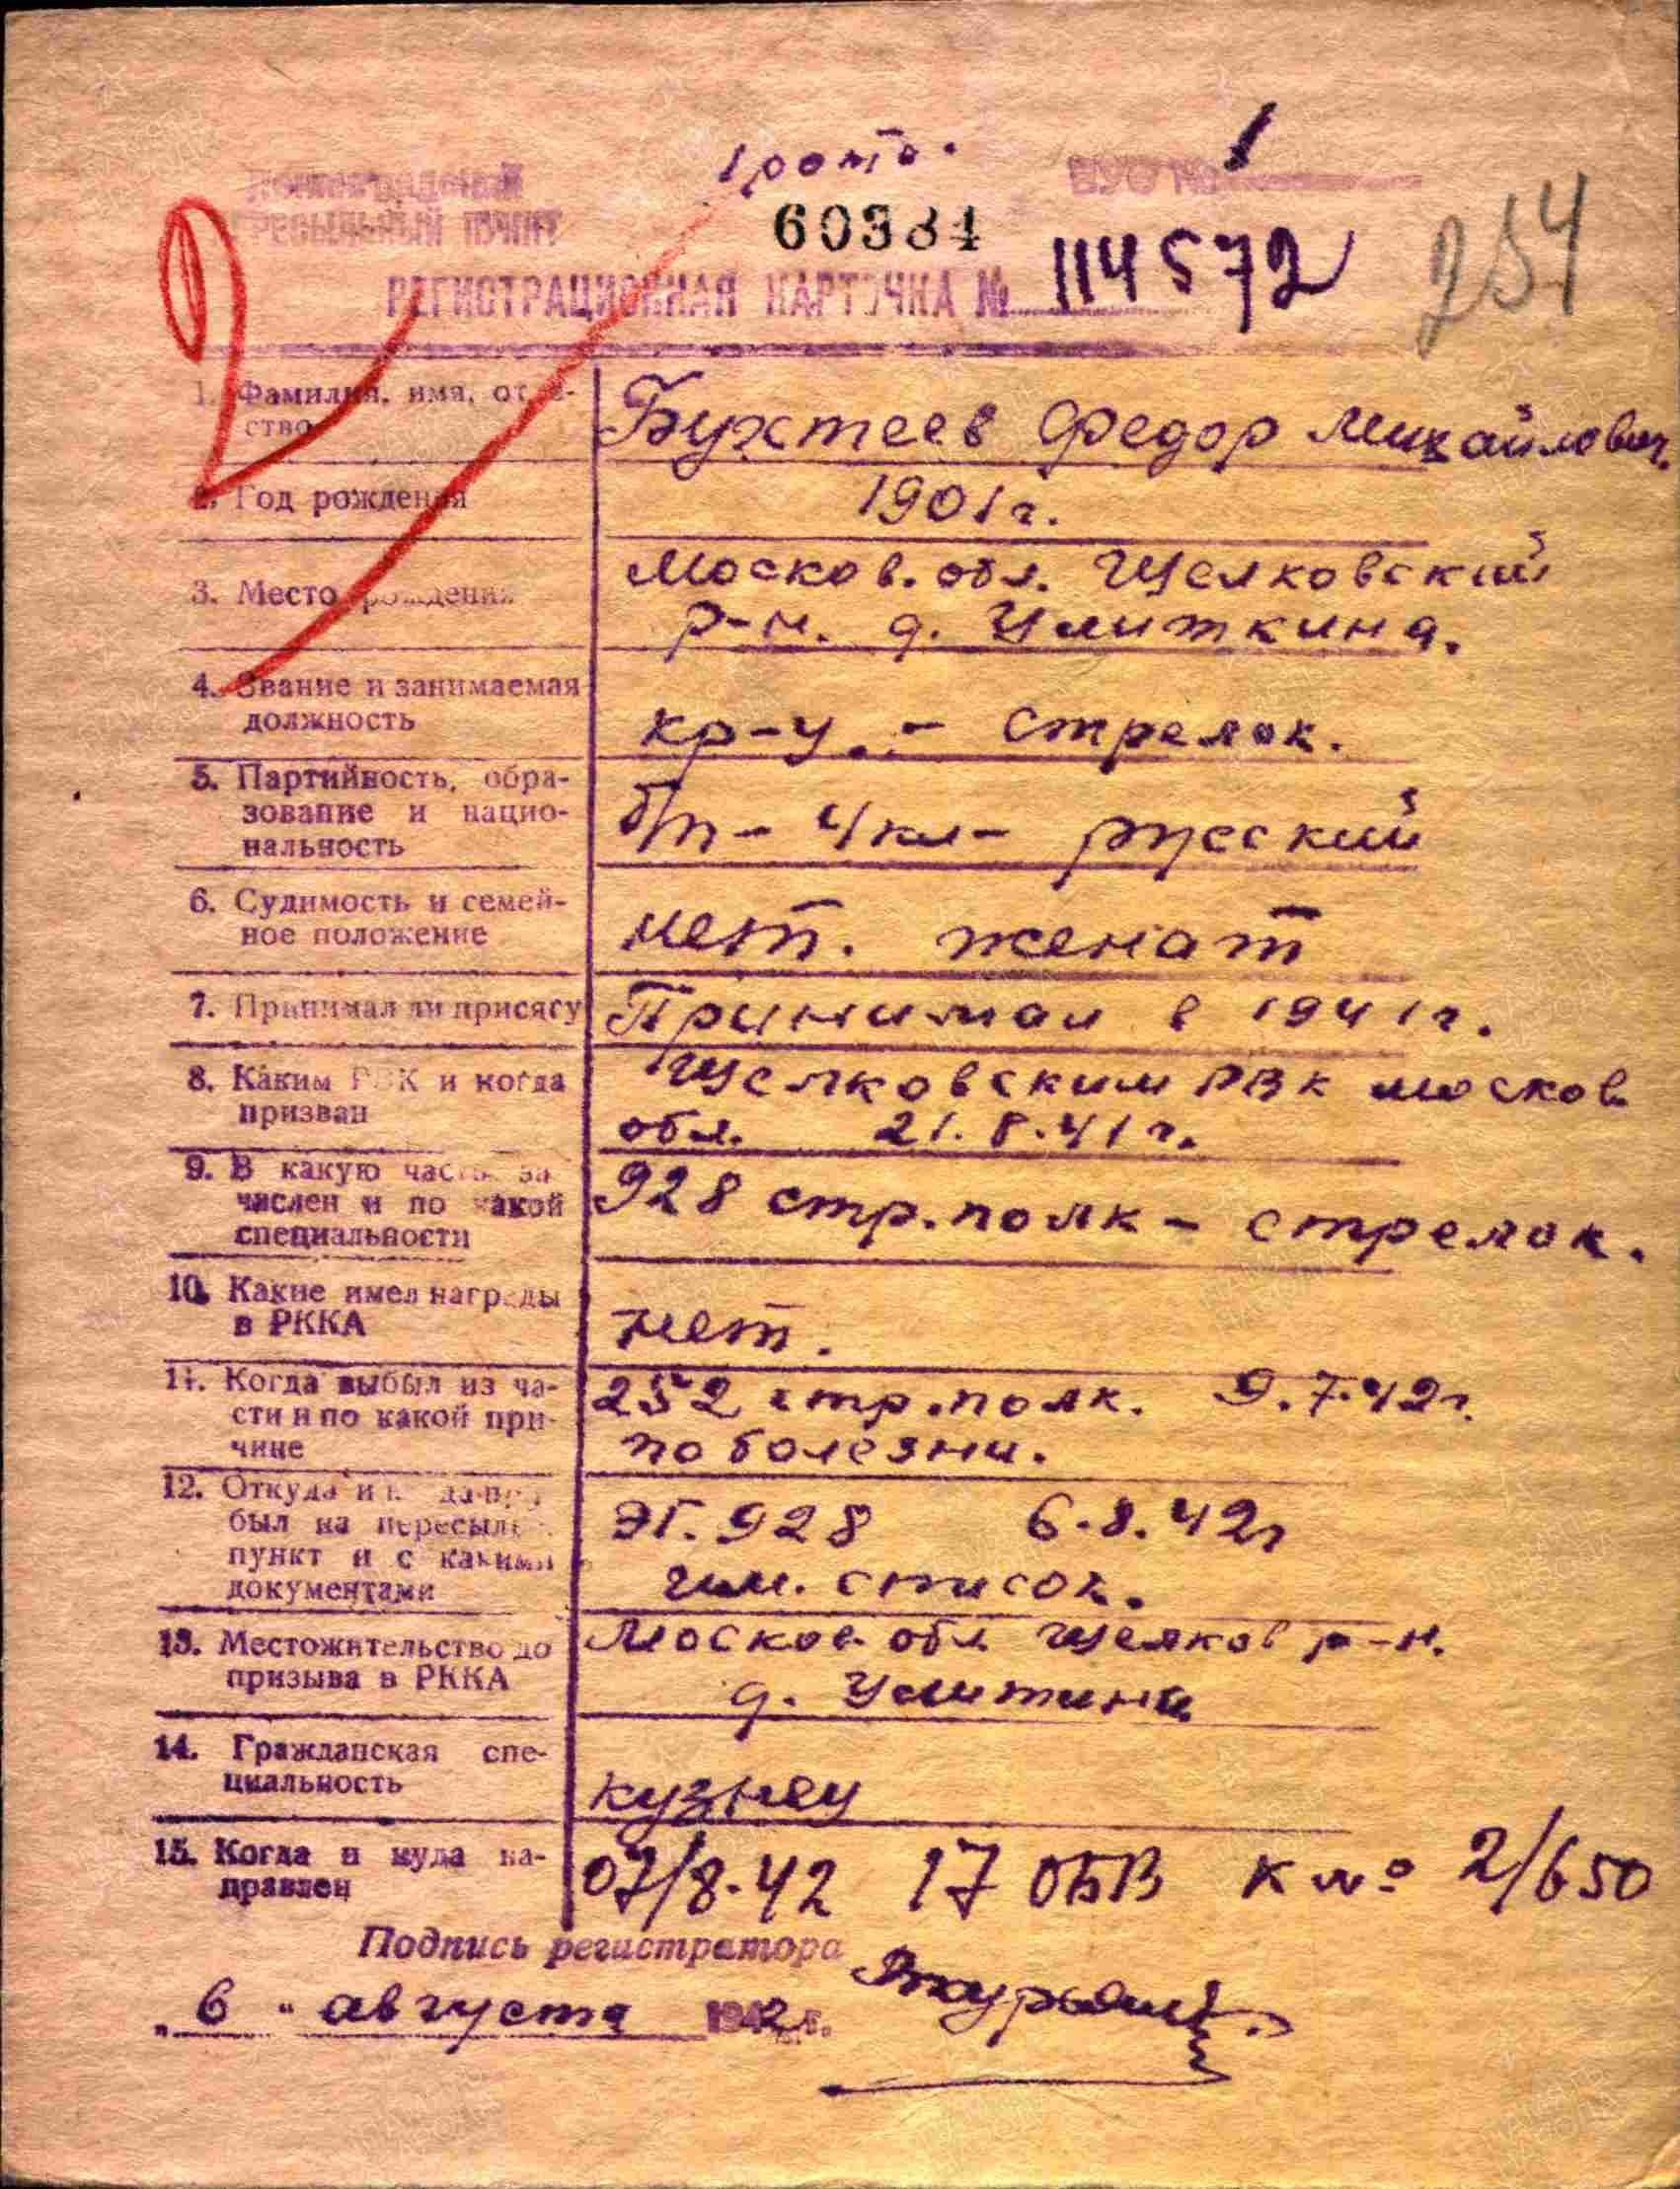 1 рота.
Ленинградский
ПЕРЕСЫЛЬНЫЙ ПУНКТ
ВУС № 1
60384
254
РЕГИСТРАЦИОННАЯ КАРТОЧКА № 114572
2
1. Фамилия, имя, отче-
ство
Бухтеев Федор Михайлович.
2. Год рождения
1901 г.
3. Место рождения
Москов. обл. Щелковский
р-н. д. Улиткина.
4. Звание и занимаемая
должность
кр-ц. - стрелок.
5. Партийность, обра-
зование и нацио-
нальность
б/п - 4 кл - русский
6. Судимость и семей-
ное положение
нет. женат
7. Принимал ли присягу
Принимал в 1941 г.
8. Каким РВК и когда
призван
Щелковским РВК Москов
обл. 21.8.41 г.
9. В какую часть за
числен и по какой
специальности
928 стр. полк - стрелок.
10. Какие имел награды
в РККА
Нет.
11. Когда выбыл из ча-
сти и по какой при-
чине
252 стр. полк. 9.7.42 г.
по болезни.
12. Откуда и когда при
был на пересыльн.
пункт и с какими
документами
ЭГ. 928 6.8.42 г
им. список.
13. Местожительство до
призыва в РККА
Москов обл Щелков р-н.
д. Улитини
14. Гражданская спе-
циальность
кузнец
15. Когда и куда на-
правлен
07/8-42 17 ОБВ к № 2/650
Подпись регистратора
„ 6 " августа 1942 г.